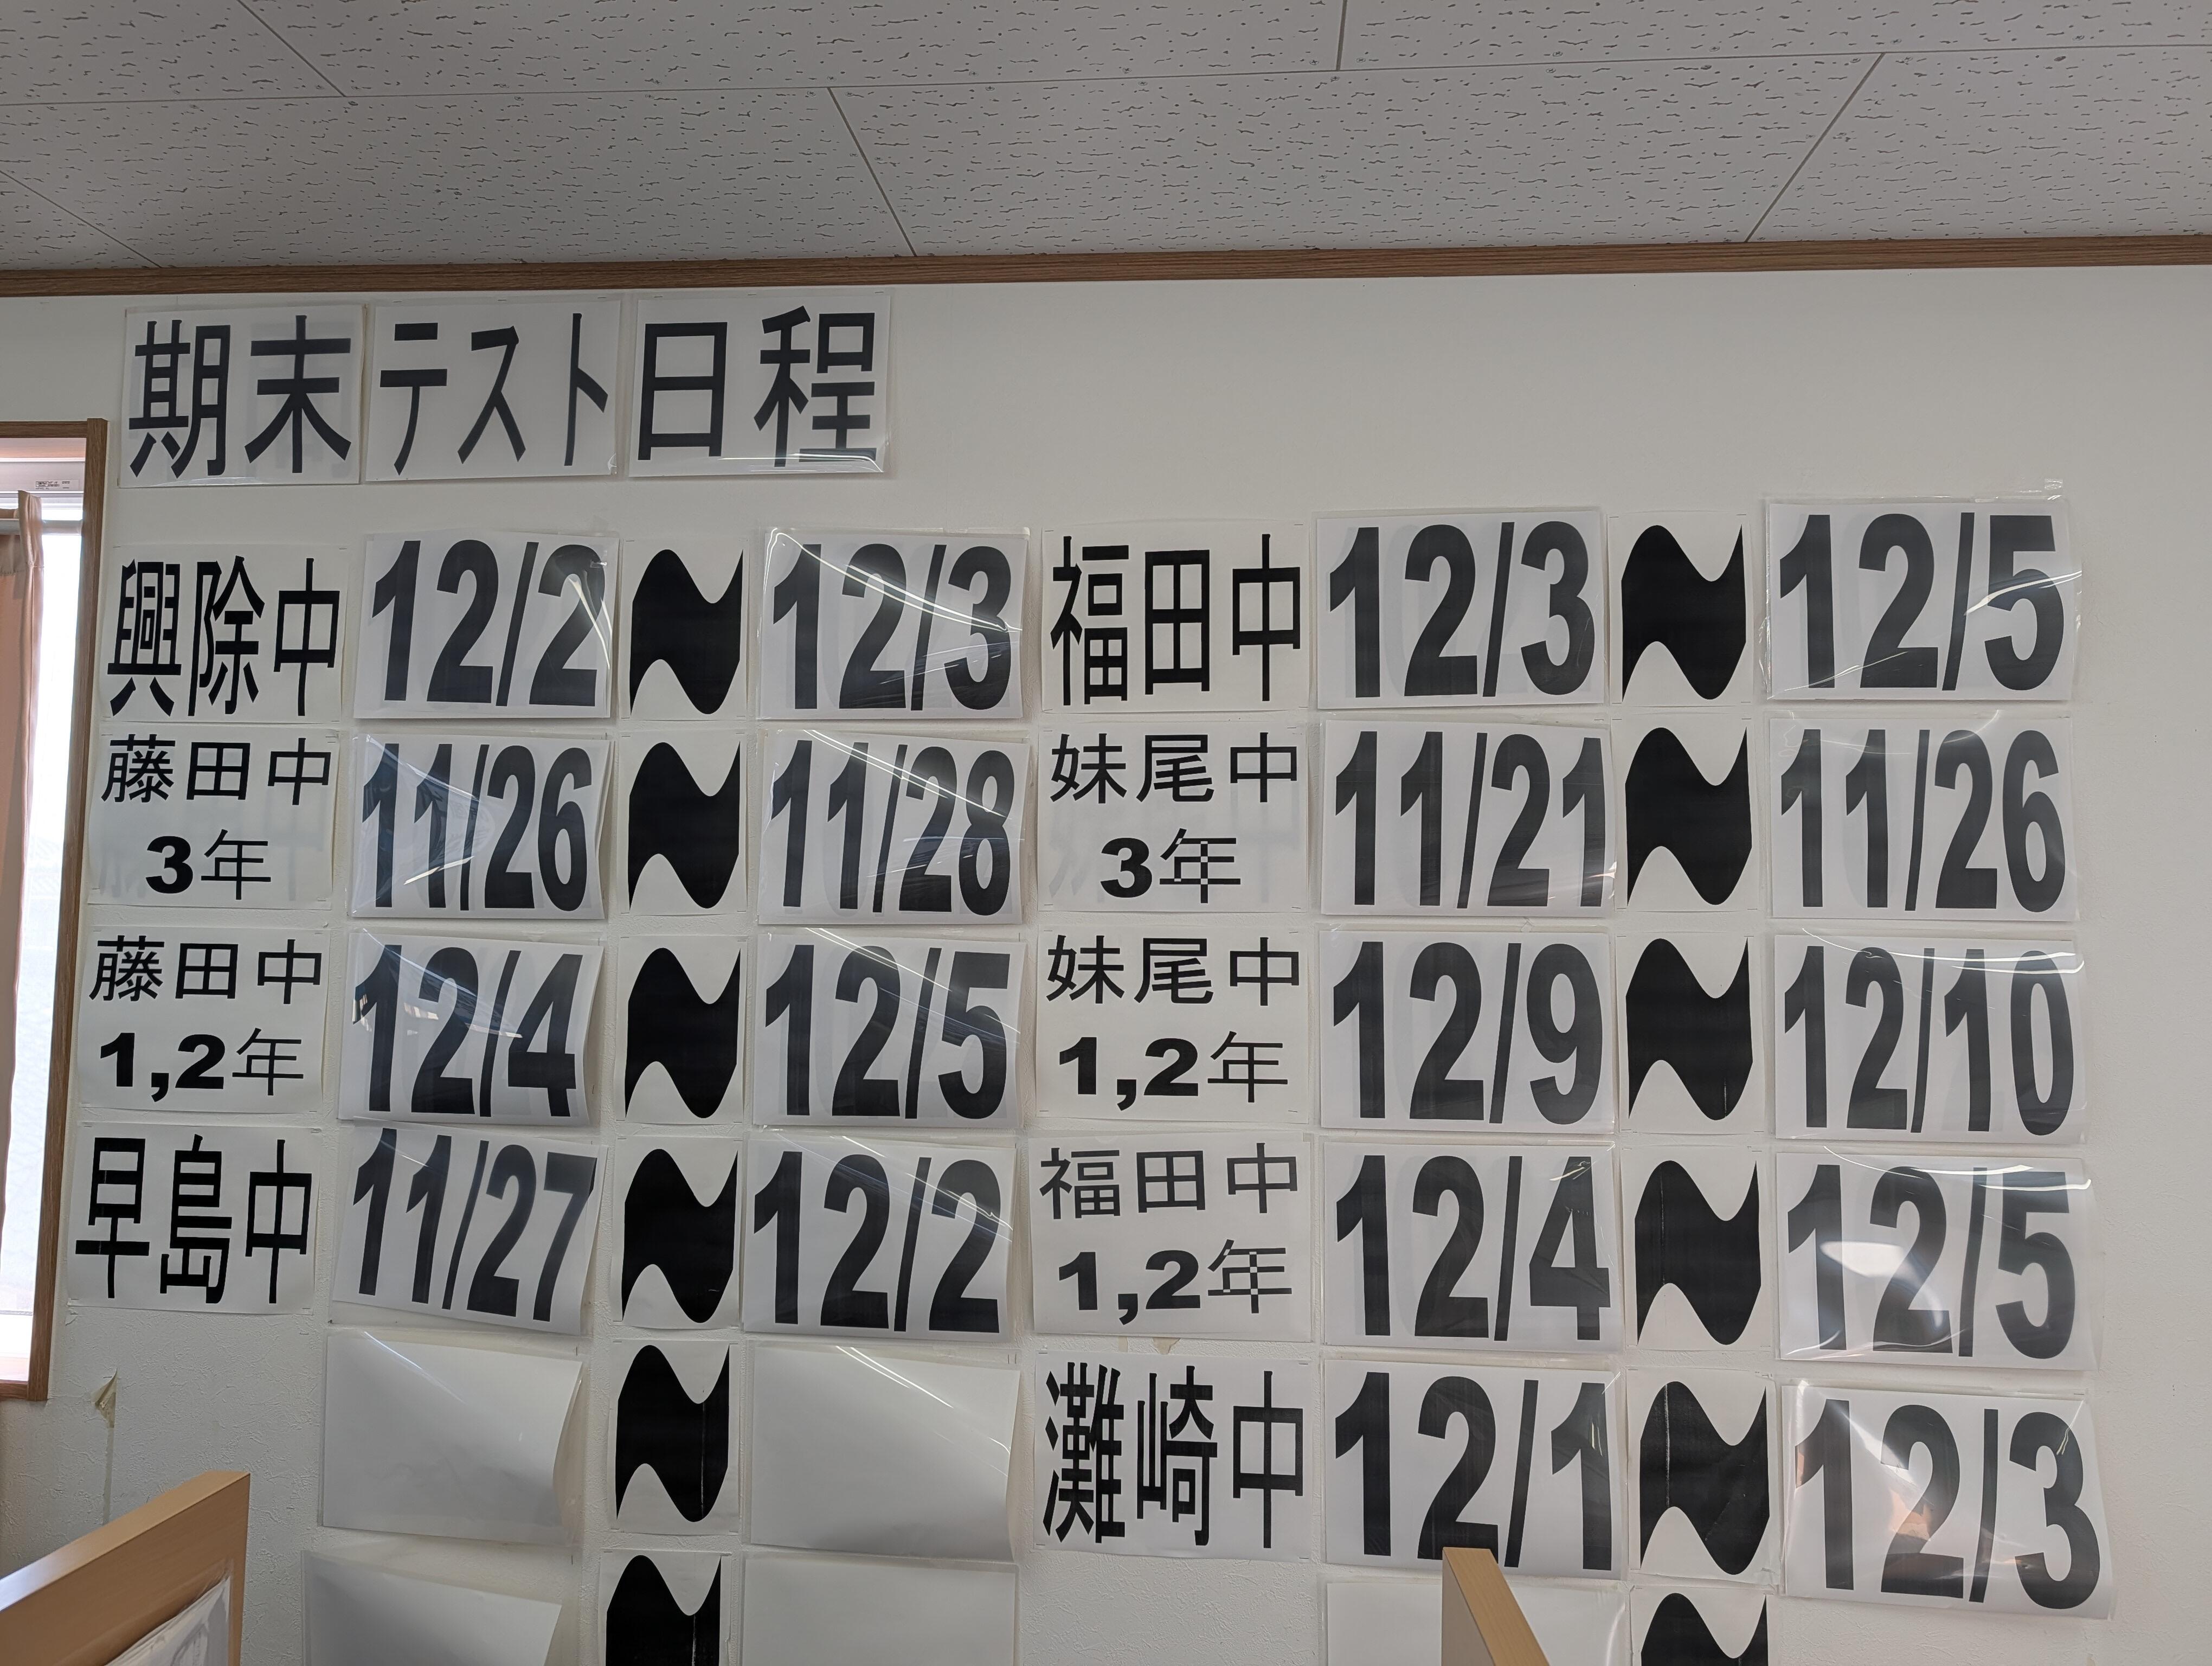 期末テスト日程
興除中 12/2 ~ 12/3
藤田中 3年 11/26 ~ 11/28
藤田中 1,2年 12/4 ~ 12/5
早島中 11/27 ~ 12/2
~
~
福田中 12/3 ~ 12/5
妹尾中 3年 11/21 ~ 11/26
妹尾中 1,2年 12/9 ~ 12/10
福田中 1,2年 12/4 ~ 12/5
灘崎中 12/1 ~ 12/3
~